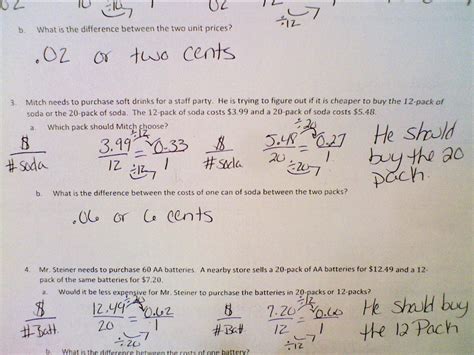 ÷12
b. What is the difference between the two unit prices?
.02 or two cents
3. Mitch needs to purchase soft drinks for a staff party. He is trying to figure out if it is cheaper to buy the 12-pack of
soda or the 20-pack of soda. The 12-pack of soda costs $3.99 and a 20-pack of soda costs $5.48.
a. Which pack should Mitch choose?
$ / #soda 3.99 / 12 = 0.33 / 1 ÷12 $ / #soda 5.48 / 20 = 0.27 / 1 ÷20 ÷20 He should
buy the 20
pack.
b. What is the difference between the costs of one can of soda between the two packs?
.06 or 6 cents
4. Mr. Steiner needs to purchase 60 AA batteries. A nearby store sells a 20-pack of AA batteries for $12.49 and a 12-
pack of the same batteries for $7.20.
a. Would it be less expensive for Mr. Steiner to purchase the batteries in 20-packs or 12-packs?
$ / #Batt 12.49 / 20 = 0.62 / 1 $ / #Batt 7.20 / 12 = 0.60 / 1 ÷12 He should buy
the 12 Pack
b. What is the difference between the costs of one battery?